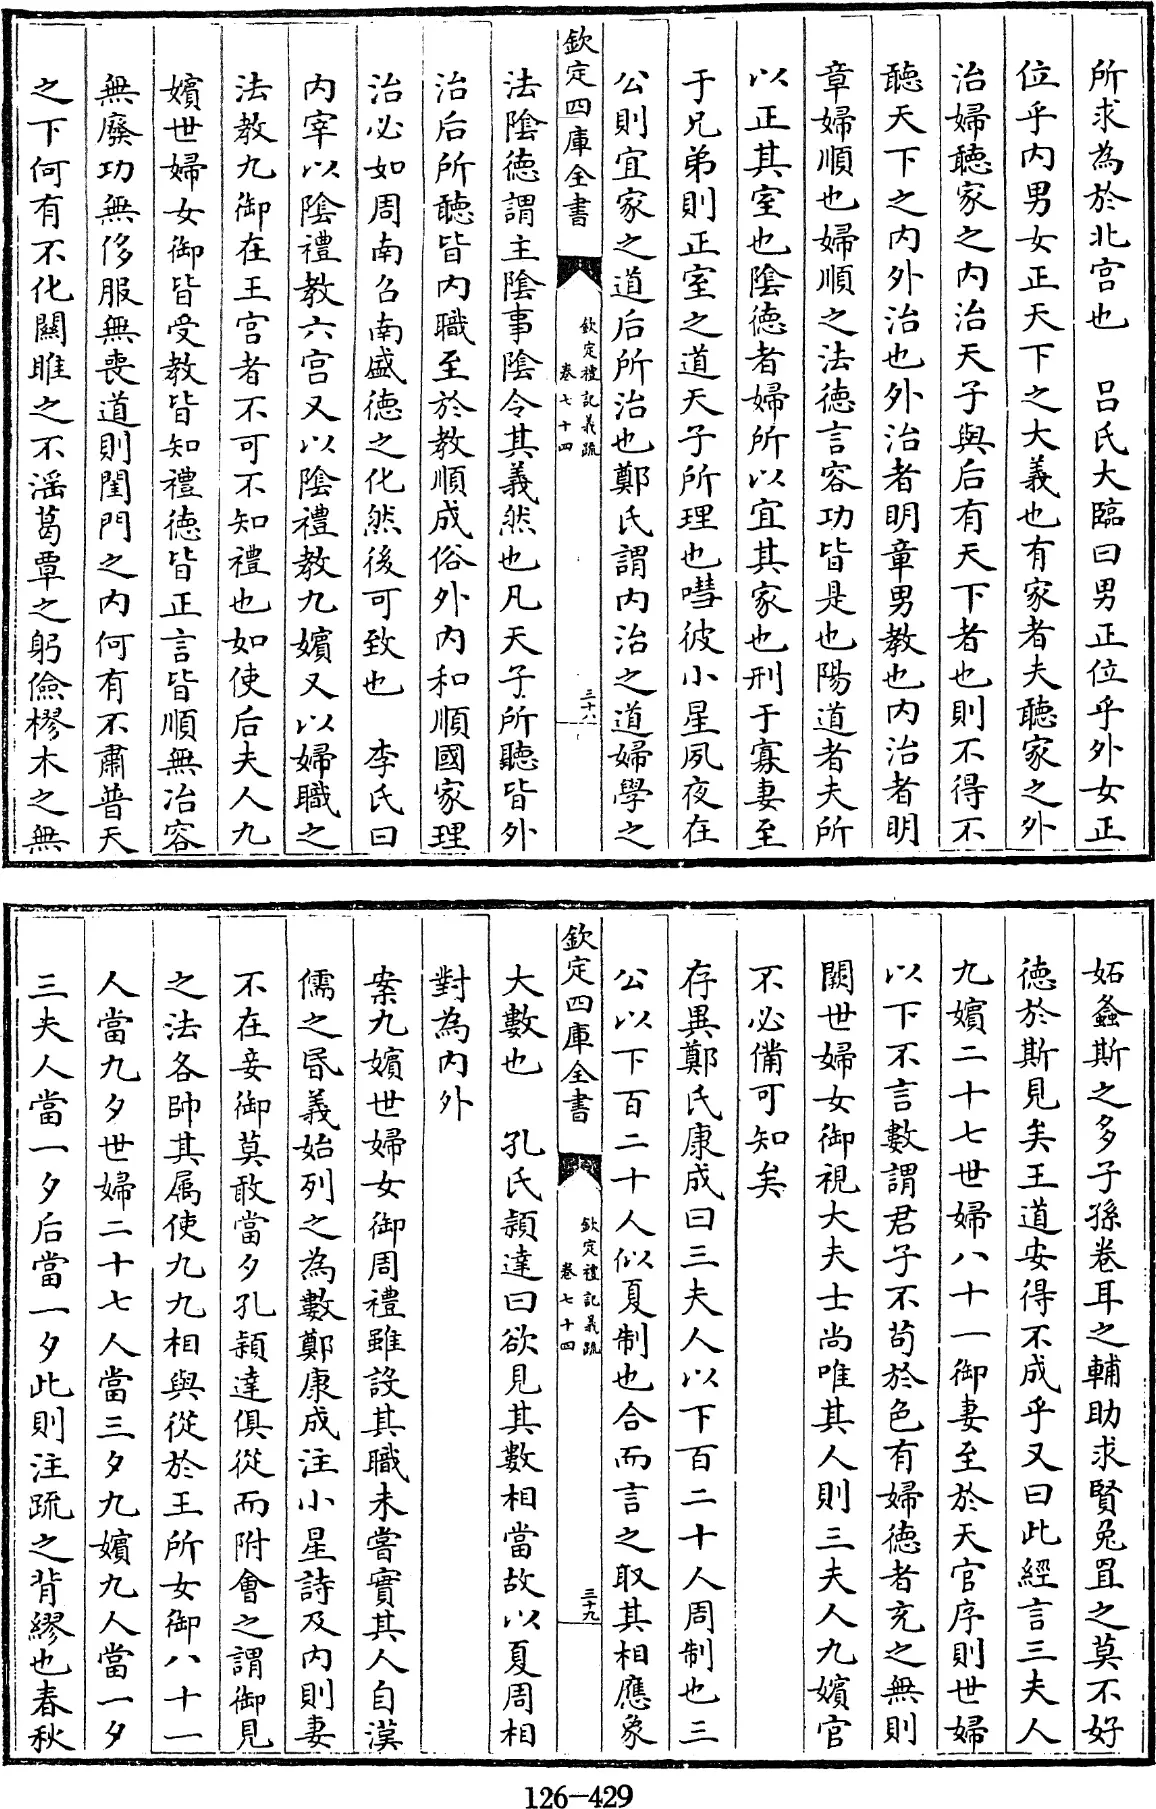 所求為於北宫也　吕氏大臨曰男正位乎外女正
位乎内男女正天下之大義也有家者夫聽家之外
治婦聽家之内治天子與后有天下者也則不得不
聽天下之内外治也外治者明章男教也内治者明
章婦順也婦順之法德言容功皆是也陽道者夫所
以正其室也陰德者婦所以宜其家也刑于寡妻至
于兄弟則正室之道天子所理也嘒彼小星夙夜在
公則宜家之道后所治也鄭氏謂内治之道婦學之
欽定四庫全書
欽定禮記義疏
卷七十四
三十八
法陰德謂主陰事陰令其義然也凡天子所聽皆外
治后所聽皆内職至於教順成俗外内和順國家理
治必如周南召南盛德之化然後可致也　李氏曰
内宰以陰禮教六宫又以陰禮教九嬪又以婦職之
法教九御在王宫者不可不知禮也如使后夫人九
嬪世婦女御皆受教皆知禮德皆正言皆順無冶容
無廢功無侈服無喪道則閨門之内何有不肅普天
之下何有不化關雎之不淫葛覃之躬儉樛木之無
妬螽斯之多子孫卷耳之輔助求賢兔罝之莫不好
德於斯見矣王道安得不成乎又曰此經言三夫人
九嬪二十七世婦八十一御妻至於天官序則世婦
以下不言數謂君子不苟於色有婦德者充之無則
闕世婦女御視大夫士尚唯其人則三夫人九嬪官
不必備可知矣
存異鄭氏康成曰三夫人以下百二十人周制也三
公以下百二十人似夏制也合而言之取其相應象
欽定四庫全書
欽定禮記義疏
卷七十四
三十九
大數也　孔氏穎達曰欲見其數相當故以夏周相
對為内外
案九嬪世婦女御周禮雖設其職未嘗實其人自漢
儒之昬義始列之為數鄭康成注小星詩及内則妻
不在妾御莫敢當夕孔穎達俱從而附會之謂御見
之法各帥其属使九九相與從於王所女御八十一
人當九夕世婦二十七人當三夕九嬪九人當一夕
三夫人當一夕后當一夕此則注疏之背繆也春秋
126-429